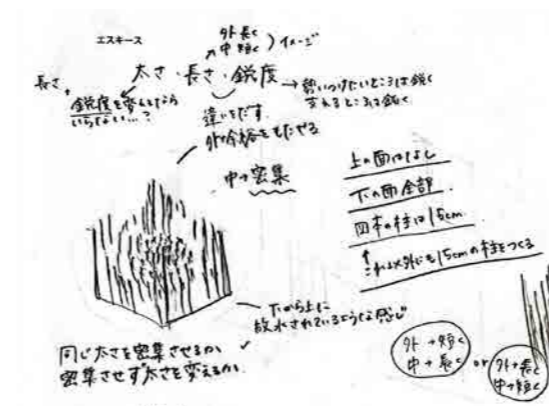 エスキース
外 長く
中 短く
イメージ
長さ、
太さ・長さ・鋭度
鋭度を変えたなら
いらない…?
違いをだす。
外に余裕をもたせる
中→密集
上の面はなし
下の面全部
四本の柱は15cm
これ以外にも15cmの柱をつくる
下から上に
放水されているような感じ
同じ太さを密集させるか
密集させず太さを変えるか
外→短く
中→長く
or
外→長く
中→短く